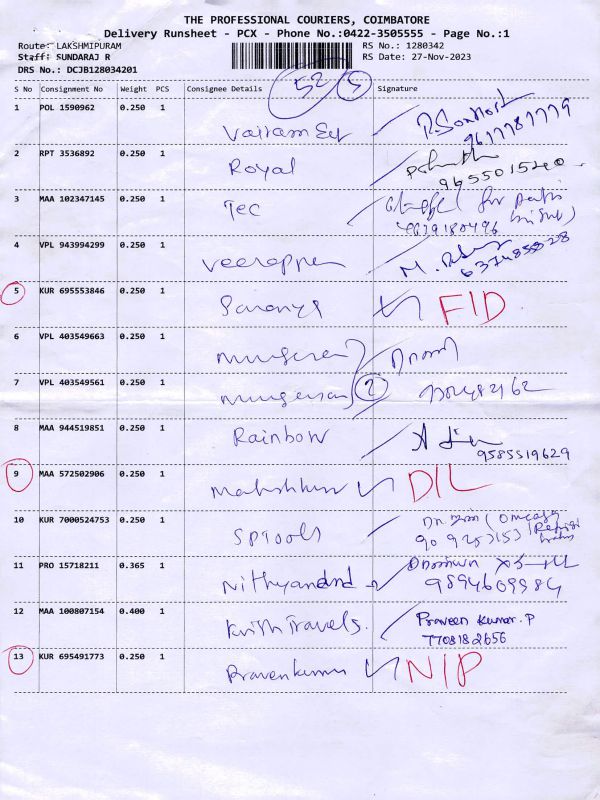 THE PROFESSIONAL COURIERS, COIMBATORE
Delivery Runsheet - PCX - Phone No.:0422-3505555 - Page No.:1
Route: LAKSHMIPURAM RS No.: 1280342
Staff: SUNDARAJ R RS Date: 27-Nov-2023
DRS No.: DCJB128034201
52 5
S No Consignment No Weight PCS Consignee Details Signature
1 POL 1590962 0.250 1
9617787779
2 RPT 3536892 0.250 1 Royal
9655015240
3 MAA 102347145 0.250 1 TEC
4 VPL 943994299 0.250 1 Veerappen
6374855528
5 KUR 695553846 0.250 1 Saranya FID
6 VPL 403549663 0.250 1
7 VPL 403549561 0.250 1 2
8 MAA 944519851 0.250 1 Rainbow
9585519629
9 MAA 572502906 0.250 1 DIL
10 KUR 7000524753 0.250 1 SPTools
11 PRO 15718211 0.365 1
9894609984
12 MAA 100807154 0.400 1 Krish Travels. Praveen Kumar.P
7708182656
13 KUR 695491773 0.250 1 Pravenkumar N/P